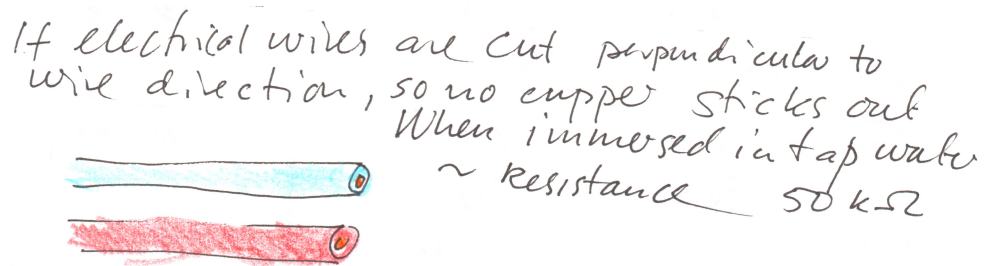 If electrical wires are cut perpendicular to
wire direction, so no cupper sticks out
When immersed in tap water
~ Resistance 50 kΩ